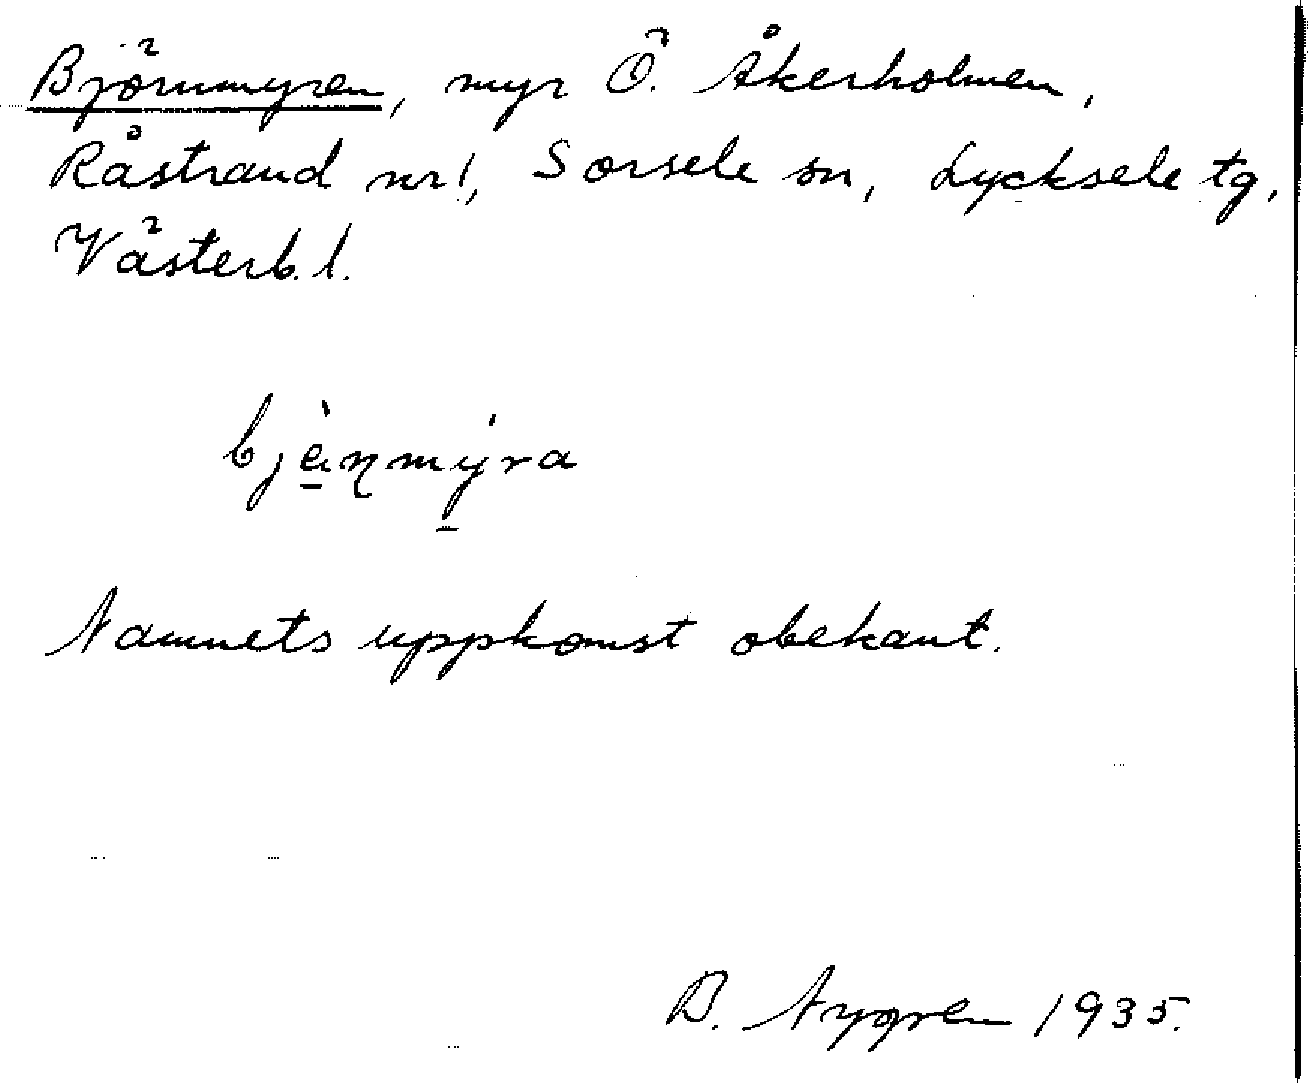 Björnmyren, myr Ö. Åkerholmen,
Råstrand nr 1, Sorsele sn, Lycksele tg,
Västerb. l.
bjènmýra
Namnets uppkomst obekant.
B. Nygren 1935.